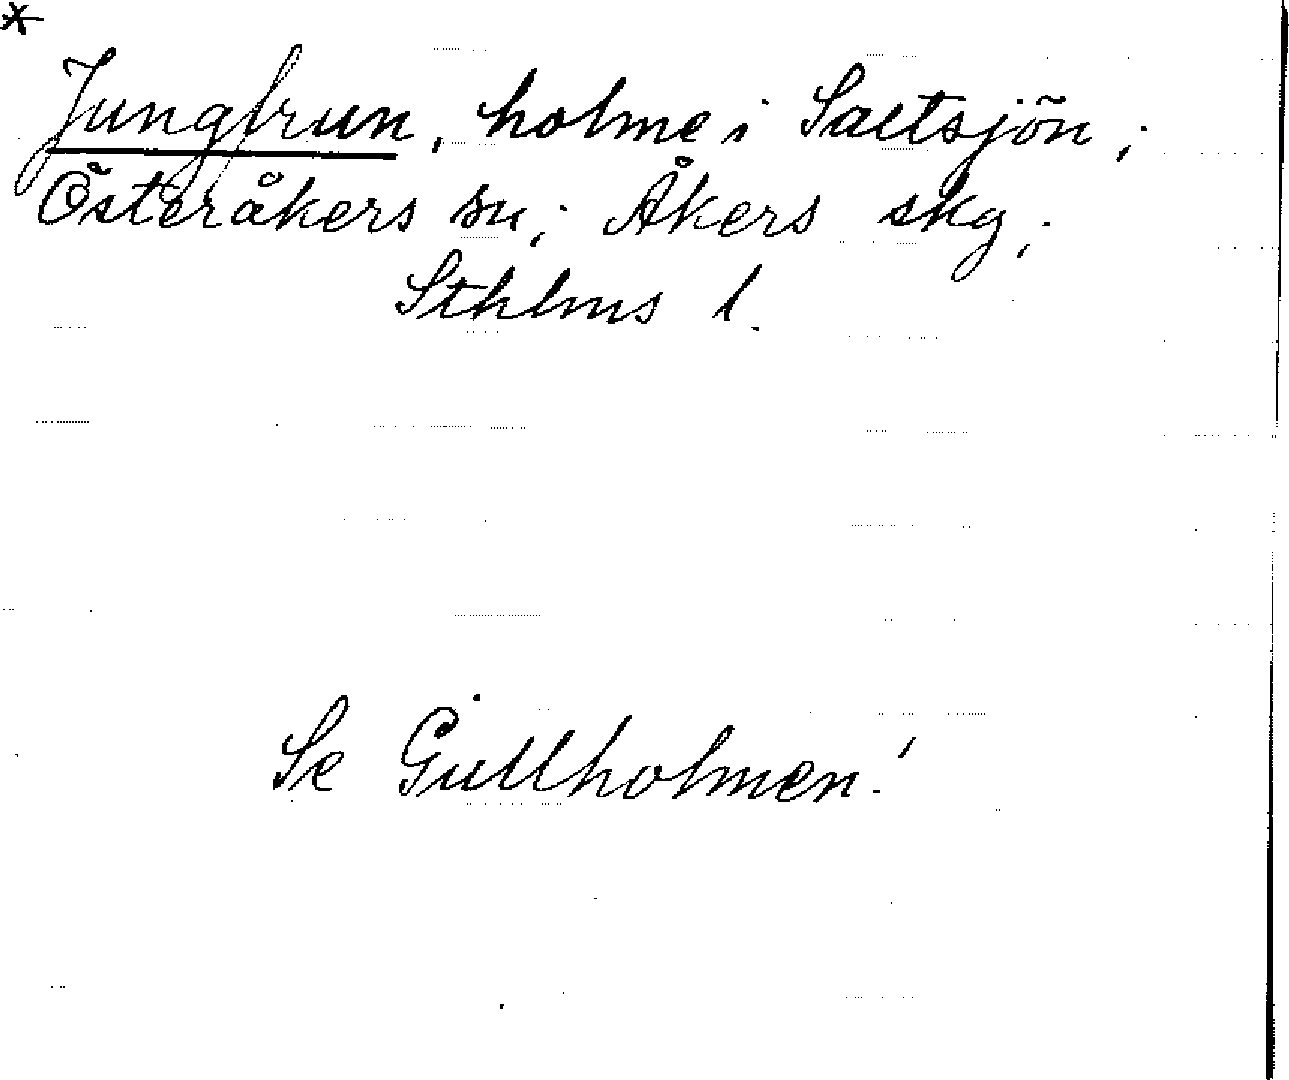 *
Jungfrun, holme i Saltsjön;
Österåkers sn; Åkers skg;
Sthlms l.
Se Gullholmen!